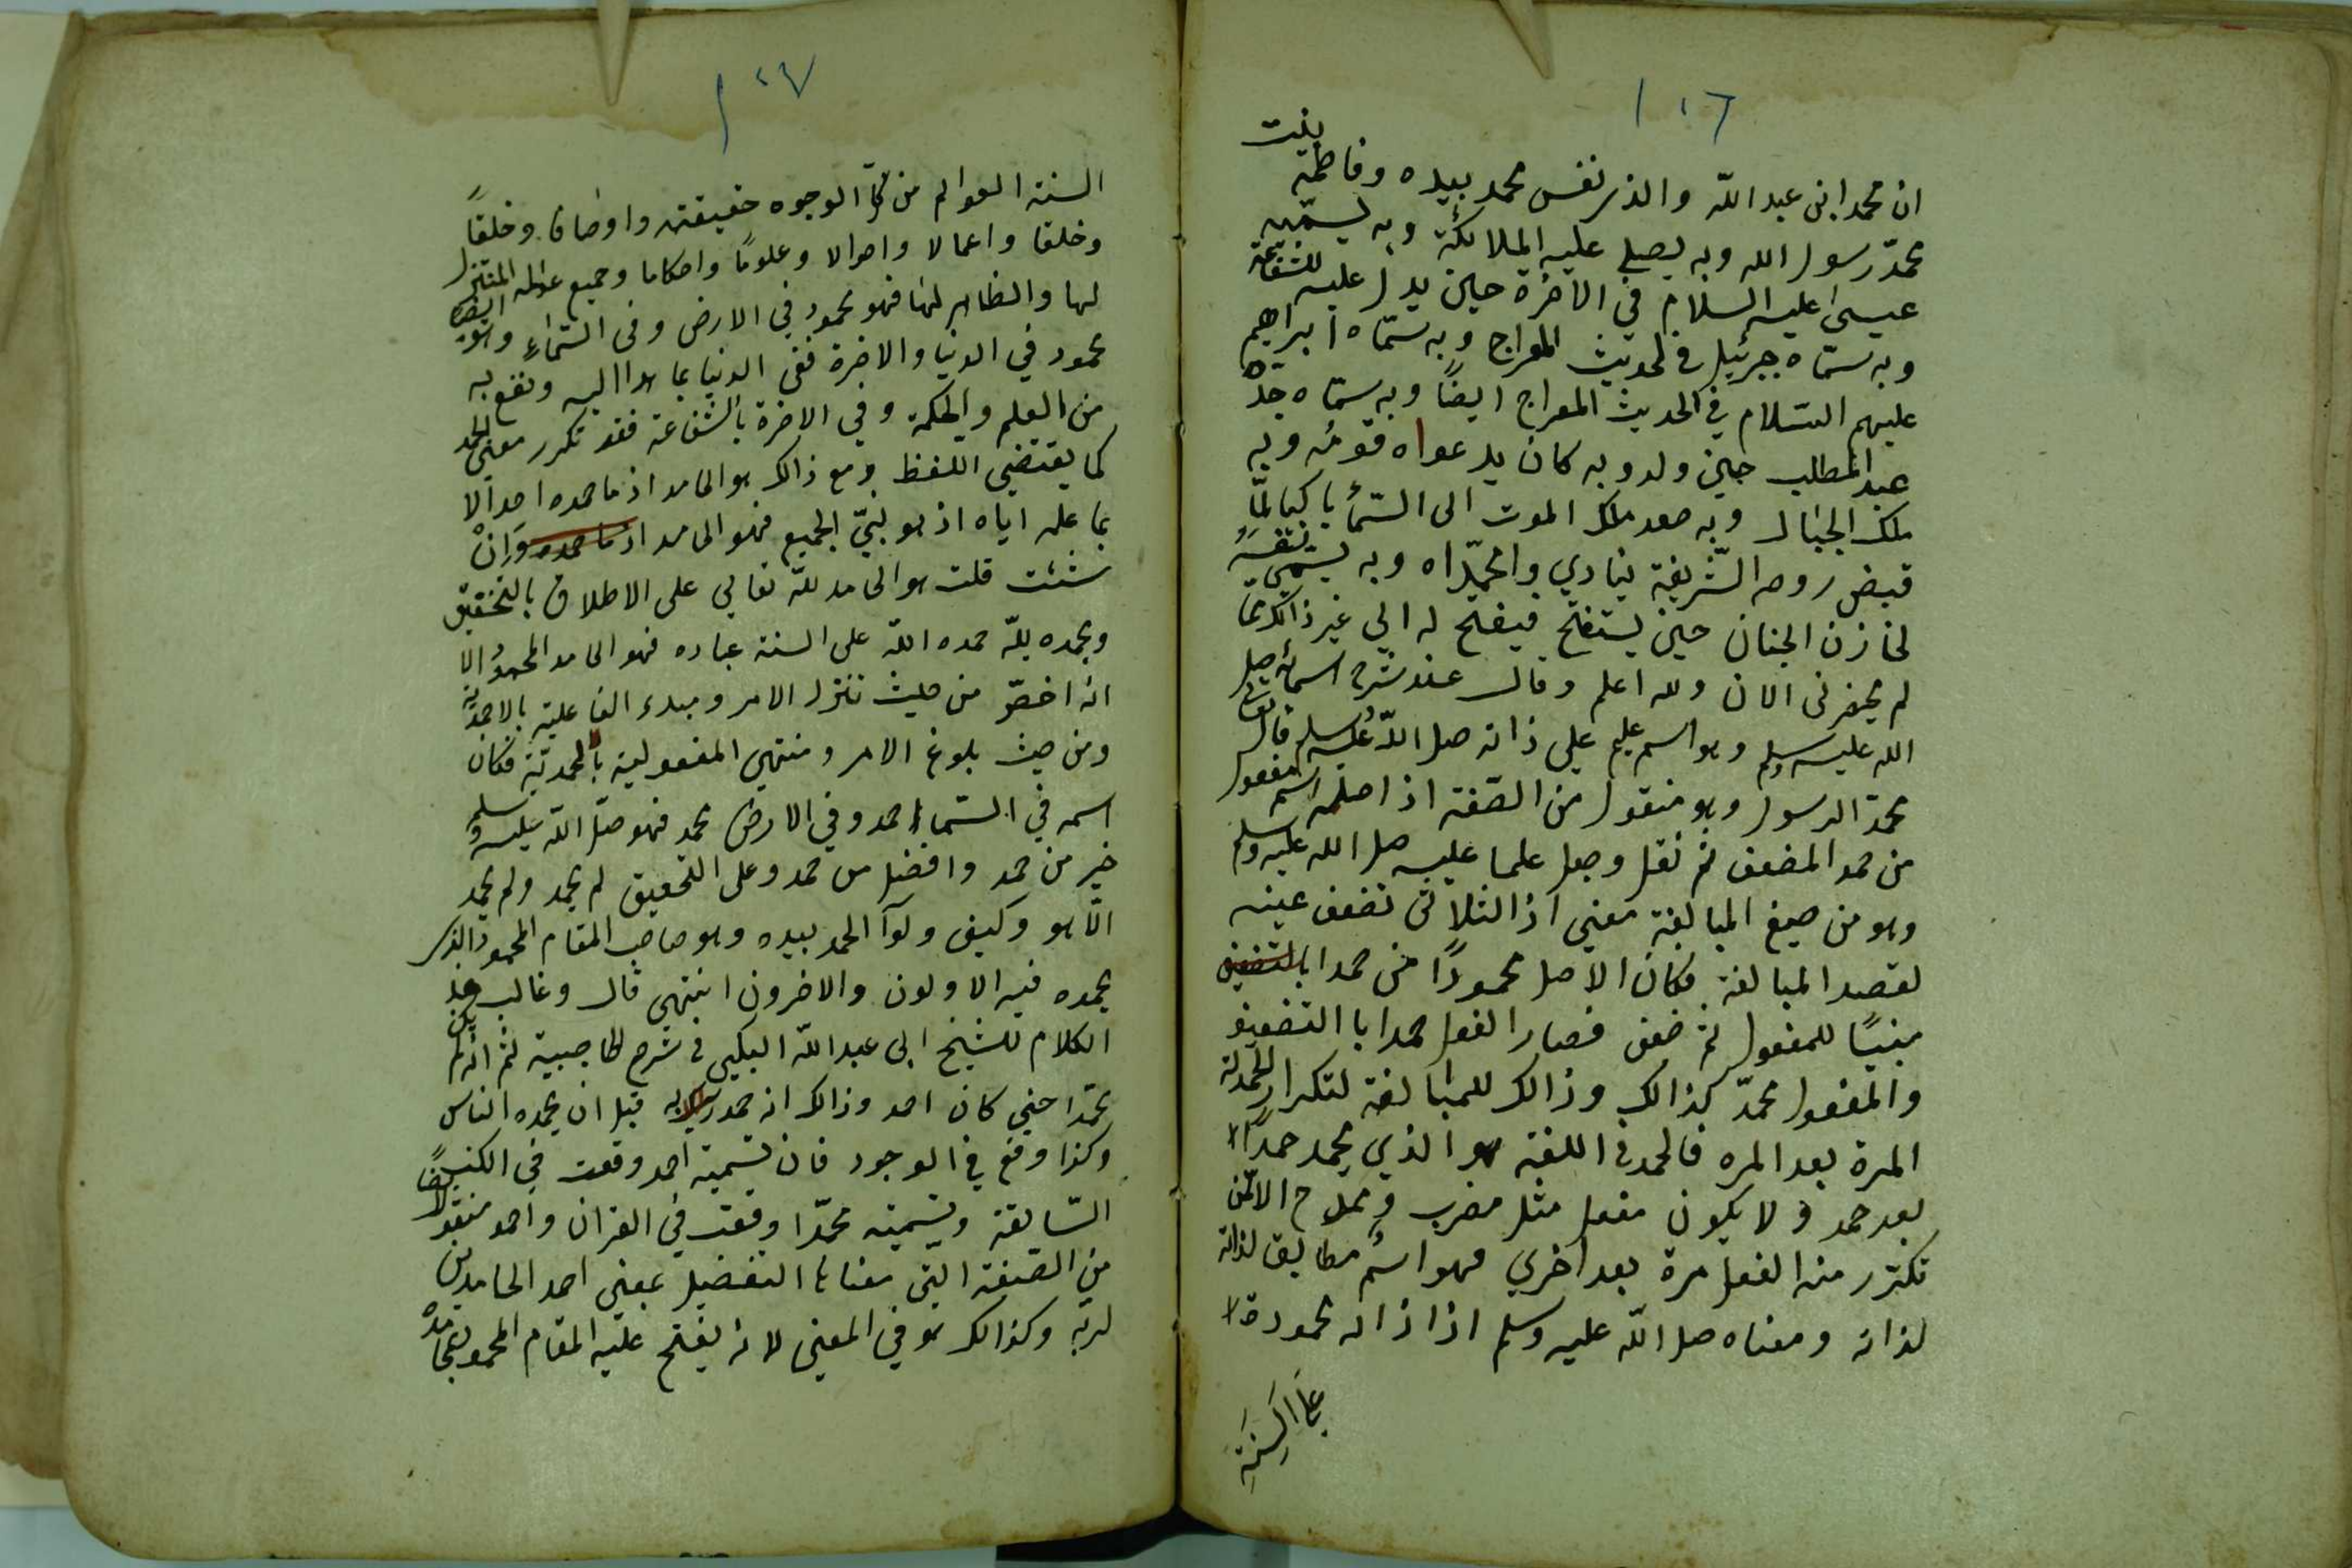 ١٠٦
ان محمد ابن عبد الله والذي نفس محمد بيده وفاطمة بنت
محمد رسول الله وبه يصلي عليه الملائكة وبه يسميه
عيسى عليه السلام في الاخرة حين يدل عليه للشفاعة
وبه سماه جبرئيل في الحديث المعراج وبه سماه ابراهيم
عليهم السلام في الحديث المعراج ايضاً وبه سماه جده
عبد المطلب حين ولد وبه كان يدعواه قومه وبه
ملك الجبال وبه صعد ملك الموت الى السماء باكيا لما
قبض روحه الشريفة ينادي وامحمداه وبه يسمي نفسه
لخازن الجنان حين يستفتح فيفتح له الي غير ذالك مما
لم يحضرني الان ولله اعلم وقال عند شرح اسمائه صلى
الله عليه وسلم وهو اسم علم على ذاته صلى الله عليه وسلم قال تعالى
محمد الرسول وهو منقول من الصفة اذ اصله اسم مفعول
من حمد المضعف ثم نقل وجعل علما عليه صلى الله عليه وسلم
وهو من صيغ المبالغة معني اذ الثلاثي تضعف عينه
لقصد المبالغة فكان الاصل محموداً من حمد ابالتضعيف
مبنيًا للمفعول ثم ضعف فصار الفعل حمدا با التضعيف
والمفعول محمد كذالك وذالك للمبالغة لتكرار الحمد له
المرة بعد المره فالحمد في اللغة هو الذي يحمد حمداً
بعد حمد ولا يكون مفعل مثل مضرب وممدح الا لمن
تكرر منه الفعل مرة بعد اخري فهو اسم مطابق لذاته
لذاته ومعناه صلى الله عليه وسلم اذ اذاته محمودة
على السنة
١٠٧
السنة العوالم من كل الوجوه حقيقته واوصافا وخلقاً
وخلقا واعمالا واحوالا وعلومًا واحكاما وجميع عوالمه المتنزل
لها والظاهر لها فهو محمود في الارض وفى السماء وهو ايضا
محمود في الدنيا والاخرة ففى الدنيا بما هدا اليه ونفع به
من العلم والحكمة وفي الاخرة بالشفاعة فقد تكرر معنى الحمد
كما يقتضي اللفظ ومع ذالك هو الحامد اذ ما حمده احد الا
بما علمه اياه اذ هو نبيّ الجميع فهو الحامد اذ ما حمده وان
شئت قلت هو الحامد لله تعالي على الاطلاق بالتحقيق
وبحمده لله حمده الله على السنة عباده فهو الحامد المحمود الا
انه اخص من حيث تنزل الامر ومبدء الفاعلية بالاحمدية
ومن حيث بلوغ الامر ومنتهي المفعولية بالمحمدية فكان
اسمه في السماء احمد وفي الارض محمد فهو صلى الله عليه وسلم
خير من حمد وافضل من حمد وعلى التحقيق لم يحمد ولم يحمد
الا هو وكيف ولوآ الحمد بيده وهو صاحب المقام المحمود الذي
يحمده فيه الاولون والاخرون انتهى قال وغالب هذا
الكلام للشيخ ابى عبد الله البكي فى شرح الحاجبية ثم انه لم يكن
محمدا حتي كان احمد وذالك انه حمد ربه قبل ان يحمده الناس
وكذا وقع في الوجود فان تسمية احمد وقعت في الكتب
السابقة وتسميته محمدا وقعت في القران واحمد منقول ايضاً
من الصفة التى معناها التفضيل بمعنى احمد الحامدين
لربه وكذالك هو في المعنى لانه يفتح عليه المقام المحمود بمحامد